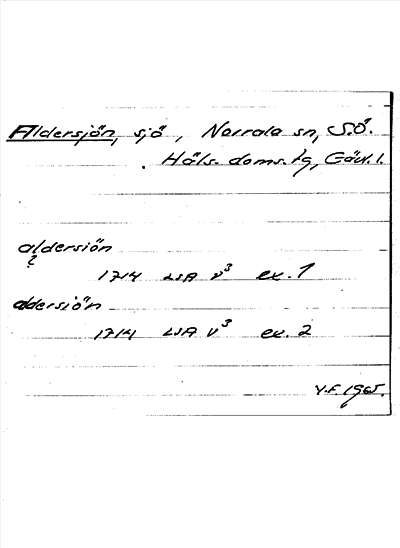 Aldersjön, sjö, Norrala sn, S.Ö.
Häls. doms. tg, Gäv. l.
aldersiön
?
1714 LSA V3 ex. 1
aldersiön
1714 LSA V3 ex. 2
V.F. 1965.